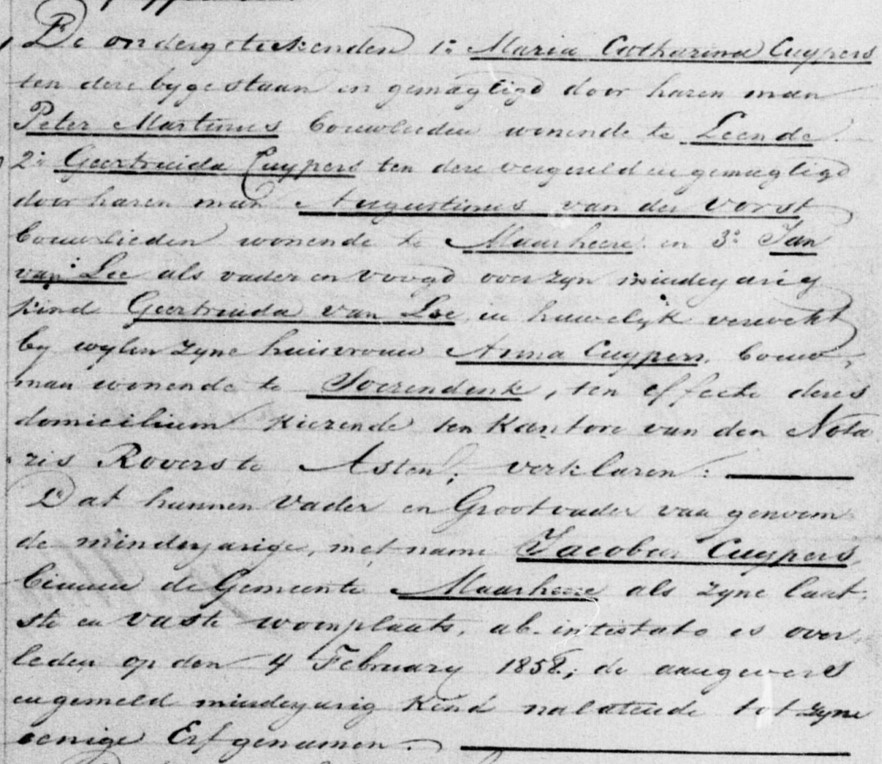 De ondergeteekenden 1º Maria Catharina Cuypers
ten dere bygestaan en gemagtigd door haren man
Peter Martinus bouwlieden wonende te Leende.
2º Geertruida Cuypers ten dere vergezeld en gemagtigd
door haren man Augustinus van der Vorst
bouwlieden wonende te Maarheeze en 3º Jan
van Lee als vader en voogd over zyn minderjarig
kind Geertruida van Lee, in huwelyk verwekt
by wylen zyne huisvrouw Anna Cuypers, bouw-
man wonende te Soerendonk, ten effecte deres
domicilium kiezende ten kantore van den Nota
ris Rovers te Asten; verklaren:
Dat hunnen Vader en Grootvader van genoem
de minderjarige, met name Jacobus Cuypers,
binnen de Gemeente Maarheeze als zyne laat-
ste en vaste woonplaats, ab-intestato is over-
leden op den 4 February 1858; de aangevers
en gemeld minderjarig kind nalatende tot zyne
eenige Erfgenamen.